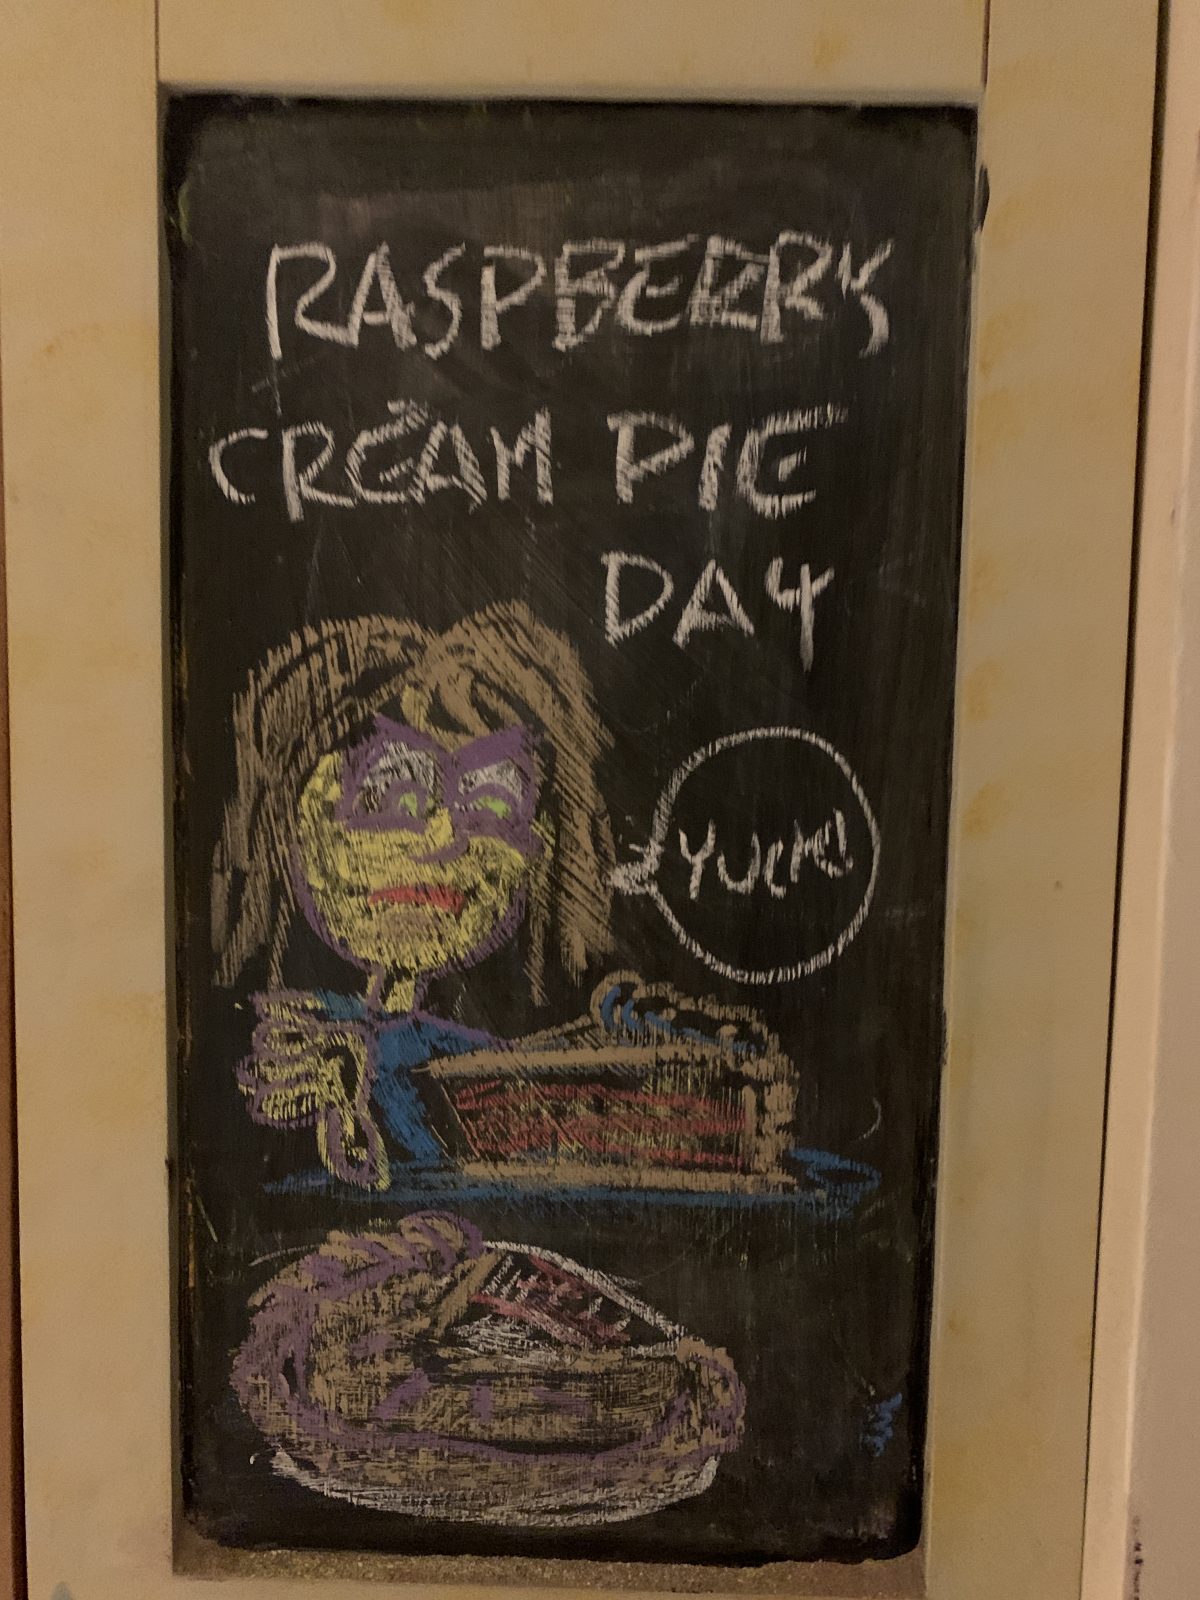 RASPBERRY
CREAM PIE
DAY
YUCK!